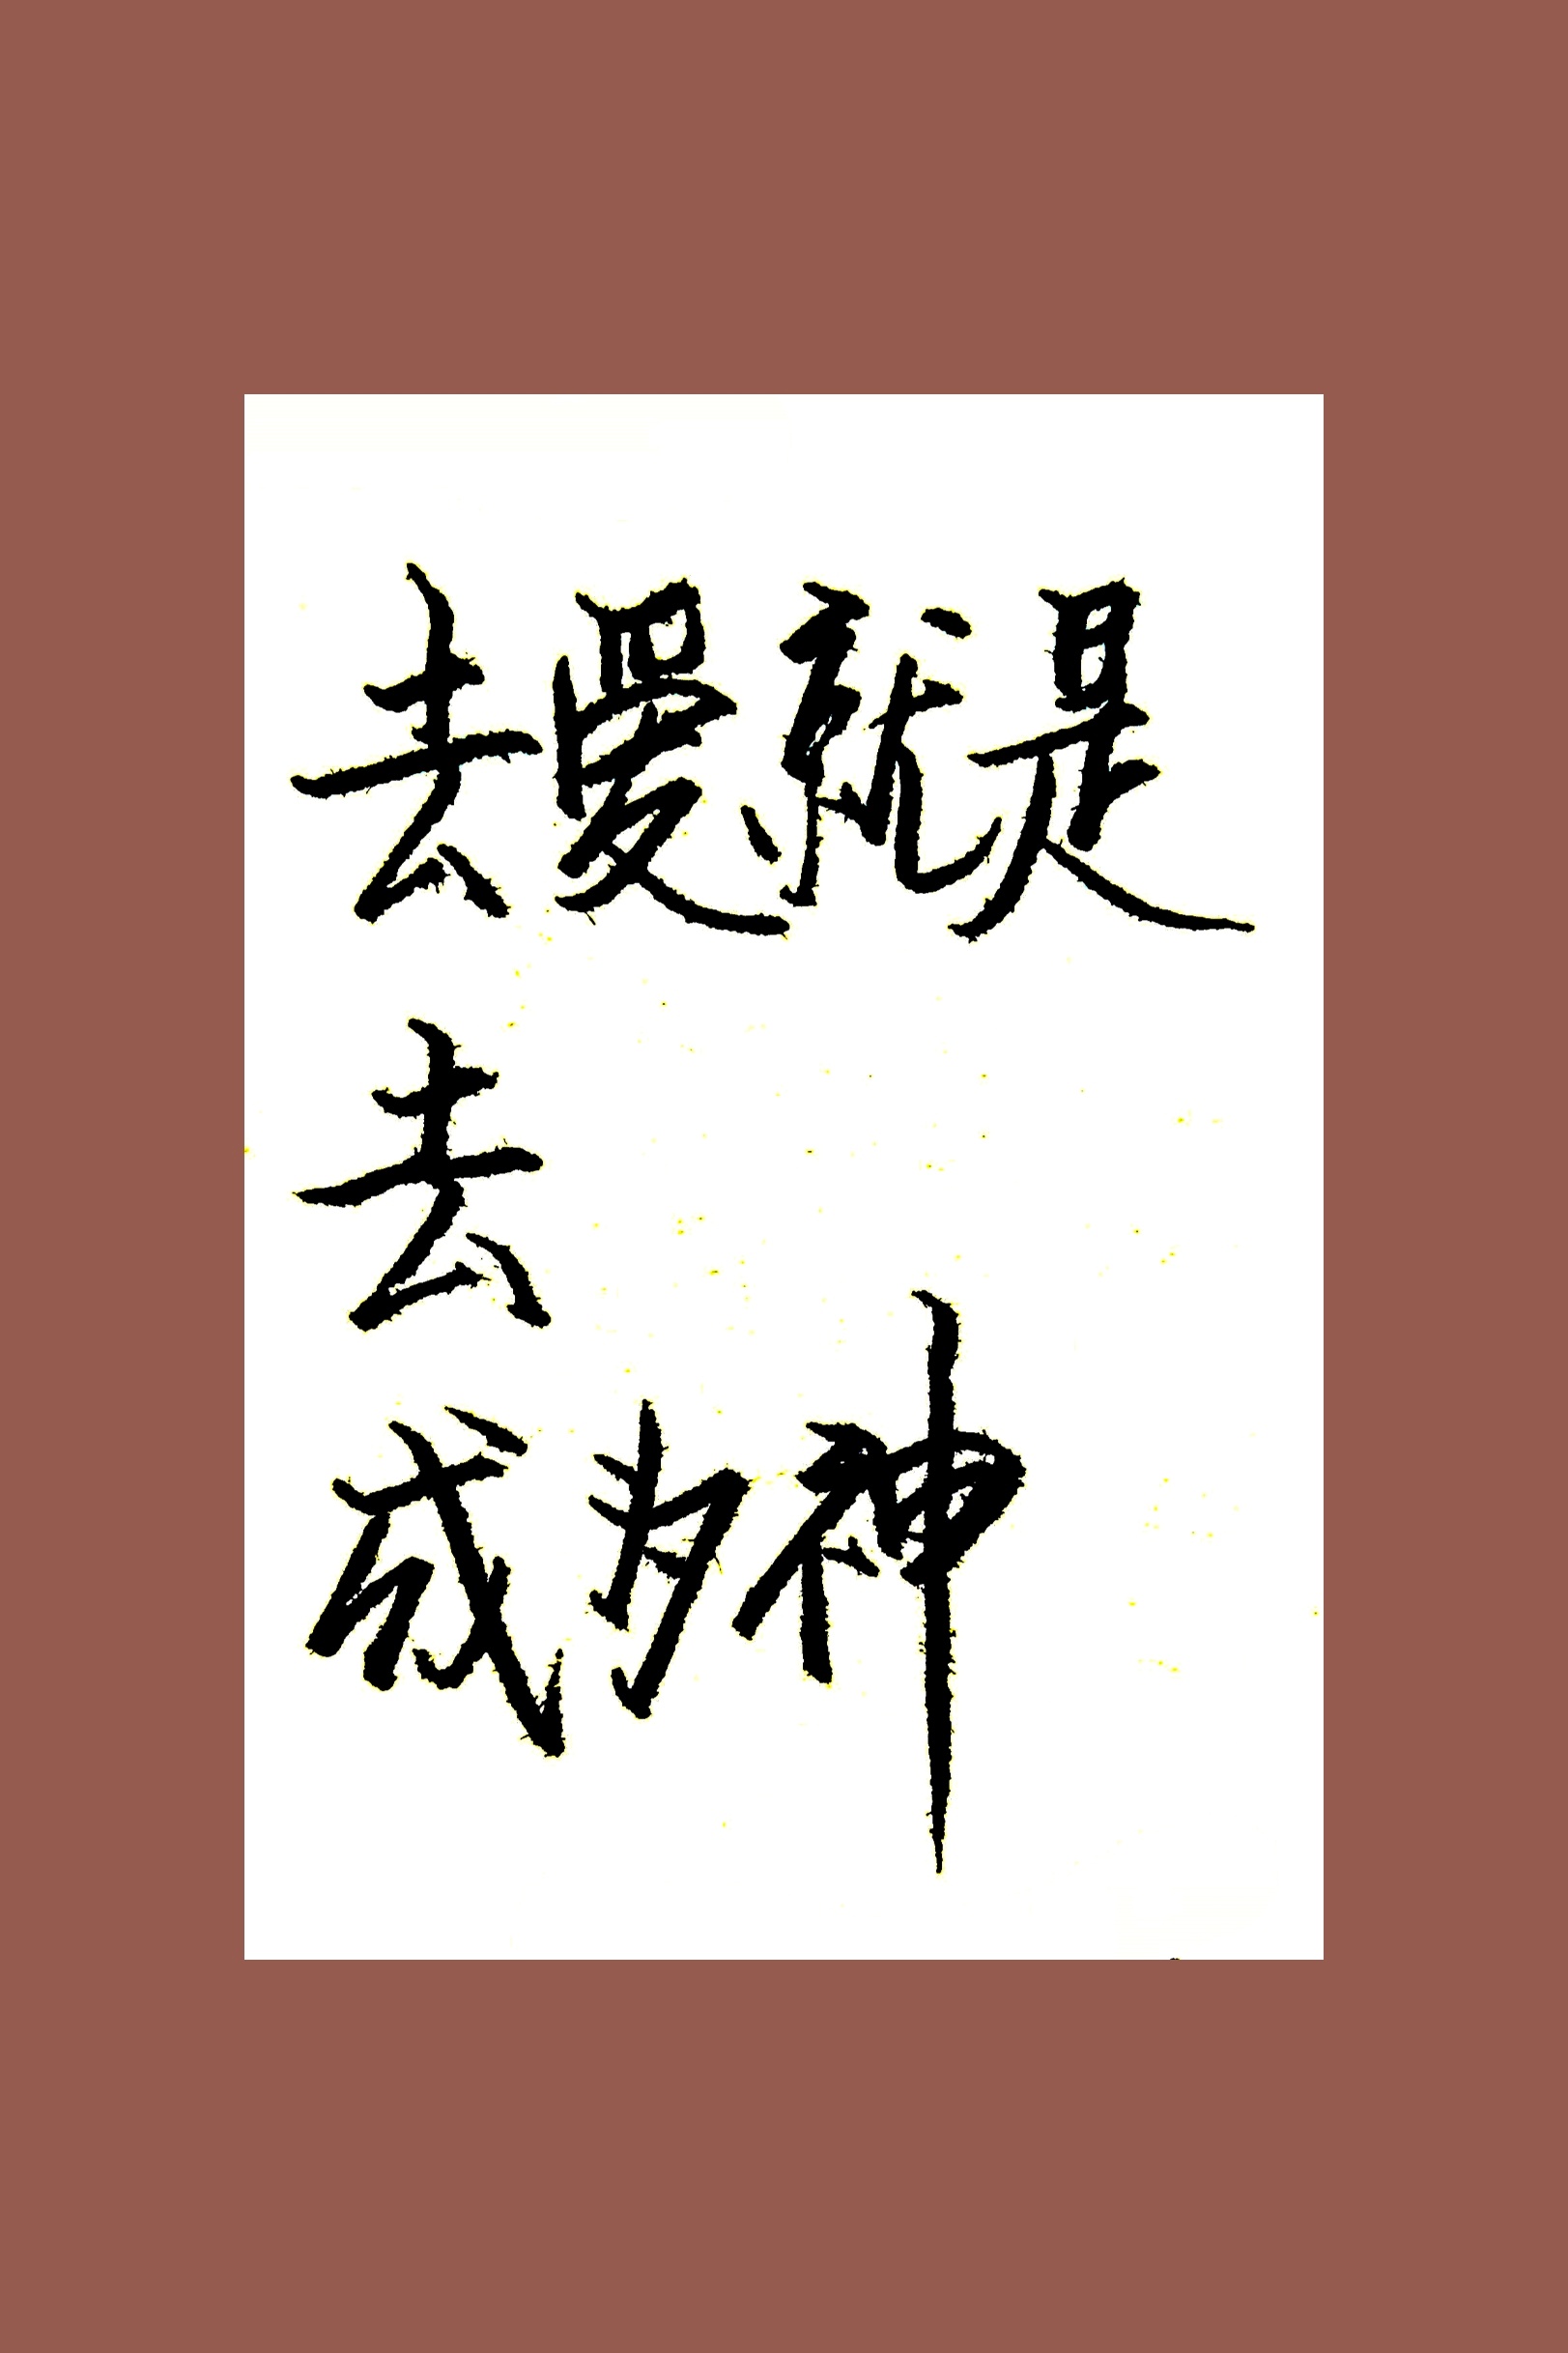 去爱就是
去
成为神